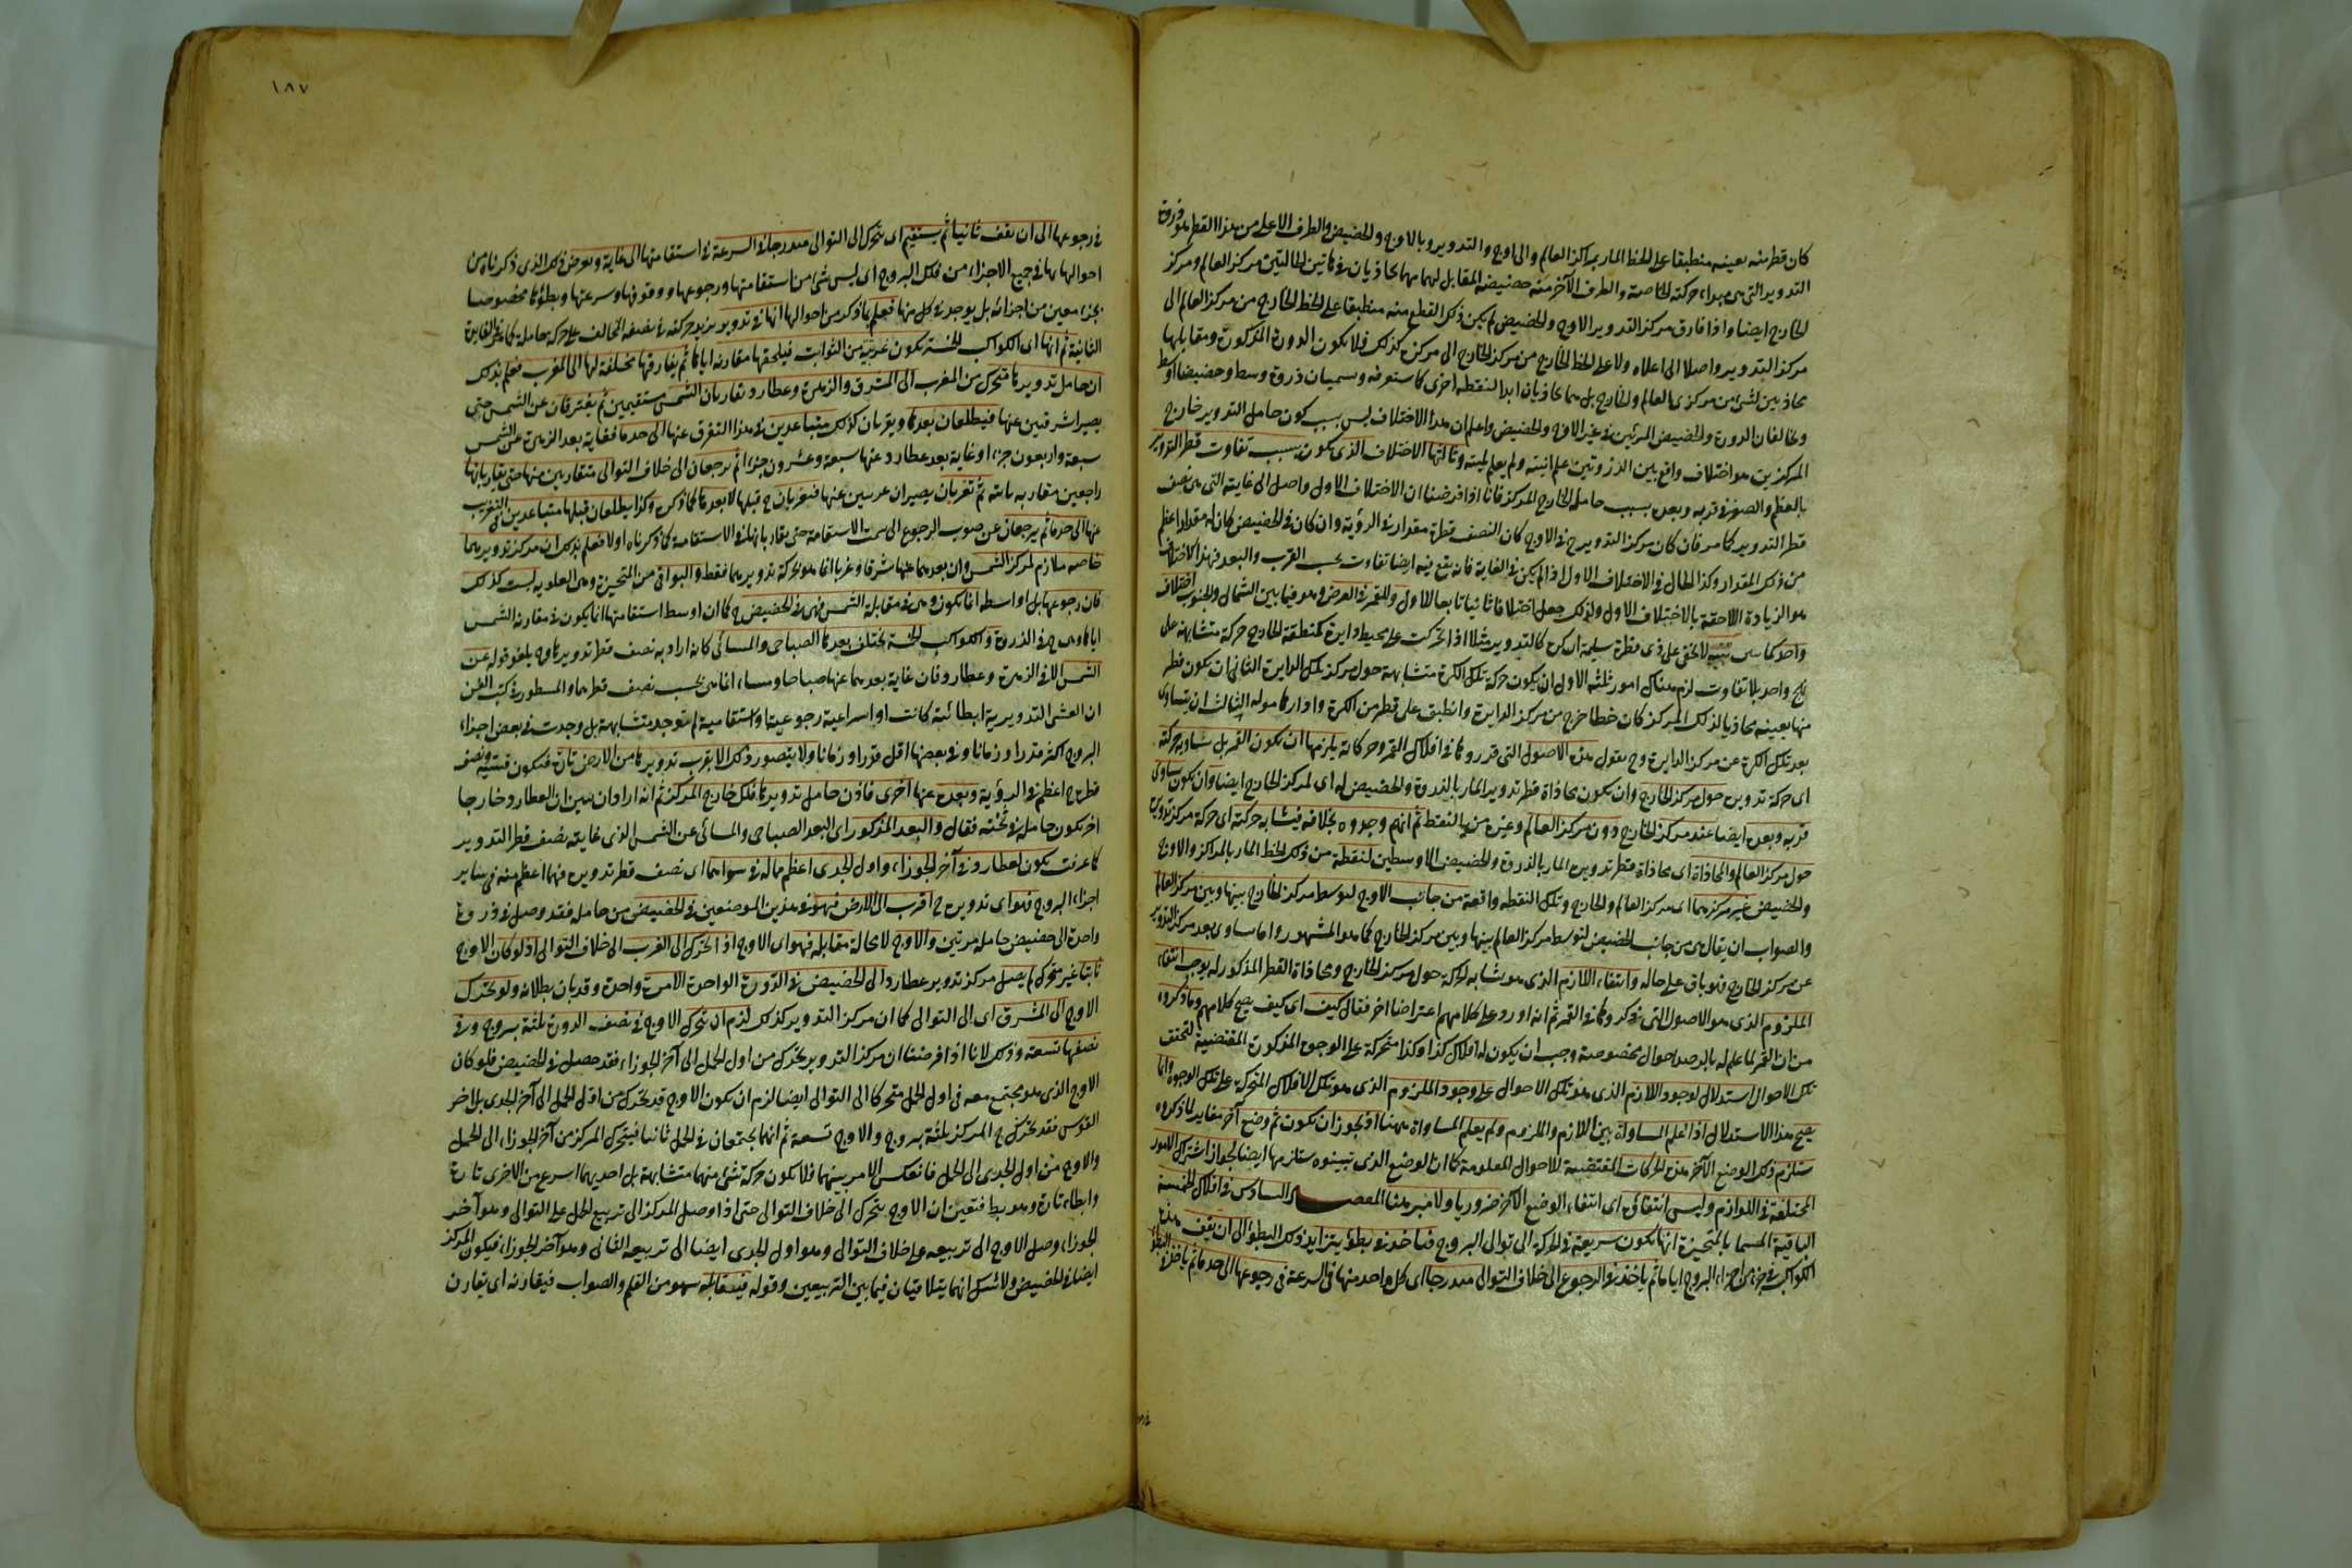 كان قطر منه بعينه منطبقا على الخط المار بمراكز العالم والى اوج والتدوير وبالاوج والحضيض والطرف الاعلى من هذا القطر هو ذروة
التدوير التى هى مبداء حركته الخاصة والطرف الآخر منه حضيضه المقابل لهما مهما يحاذيان فى هاتين الحالتين مركز العالم ومركز
الخارج ايضا واذا فارق مركز التدوير الاوج والحضيض لم يكن ذلك القطر منه منطبقا على الخط الخارج من مركز العالم الى
مركز التدوير واصلا الى اعلاه ولا على الخط الخارج من مركز الخارج الى مركزه كذلك فلا يكون الذروة المذكورة ومقابلها
محاذيين لشئ من مركزى العالم والخارج بل هما يحاذيان ابدا لنقطه اخرى كما ستعرفه وسميان ذروة وسط وحضيضا اوسط
ويخالفان الذروة والحضيض المرئيين فى غير الاوج والحضيض واعلم ان هذا الاختلاف ليس بسبب كون حامل التدوير خارج
المركز بل هو اختلاف واقع بين الذروتين علم انيته ولم يعلم لميته وثالثها الاختلاف الذى يكون بسبب تفاوت قطر التدوير
بالعظم والصغر فى قربه وبعده بسبب حامله الخارج المركز فانا اذا فرضنا ان الاختلاف الاول واصل الى غايته التى هى نصف
قطر التدوير كما مر فان كان مركز التدوير ح فى الاوج كان النصف قطره مقدار فى الرؤية وان كان فى الحضيض كان له مقدار اعظم
من ذلك المقدار وكذا الحال فى الاختلاف الاول اذا لم يكن فى الغاية فانه يقع فيه ايضا تفاوت بحسب القرب والبعد فهذا الاختلاف
هو الزيادة اللاحقة بالاختلاف الاول ولذلك جعل اختلافا ثانيا تابعا للاول وللقمر فى العرض وهو فيما بين الشمال والجنوب اختلاف
واحد كما مر تنبيه لا يخفى على ذى فطرة سليمة ان كرة كالتدوير مثلا اذا تحركت على محيط دايرة كمنطقة الخارج حركة متشابهة على
نهج واحد بلا تفاوت لزم هناك امور ثلثة الاول ان يكون حركة تلك الكرة متشابهة حول مركز تلك الدايرة الثانى ان يكون قطر
منها بعينه محاذيا لذلك المركز كان خطا خرج من مركز الدايرة وانطبق على قطر من الكرة وادارها حوله الثالث ان يتساوى
بعد تلك الكرة عن مركز الدايرة وح نقول هذه الاصول التى قرروها فى افلاك القمر وحركاته يلزمها ان يكون القمر بل شابه حركته
اى حركة تدويره حول مركز الخارج وان يكون محاذاة قطر تدويره المار بالذروة والحضيض له اى لمركز الخارج ايضا وان يكون تساوى
قربه وبعده ايضا عند مركز الخارج دون مركز العالم وغيره من النقط ثم انهم وجدوه بخلافه فتشابه حركته اى حركة مركز تدويره
حول مركز العالم والمحاذاة اى محاذاة قطر تدويره المار بالذروة والحضيض الاوسطين لنقطة من ذلك الخط المار بالمراكز والاوج
والحضيض غير مركزيهما اى مركز العالم والخارج وتلك النقطة واقعة من جانب الاوج لتوسط مركز الخارج بينها وبين مركز العالم
والصواب ان يقال هى من جانب الحضيض لتوسط مركز العالم بينها وبين مركز الخارج كما هو المشهور واما تساوى بعد مركز التدوير
عن مركز الخارج فهو باق على حاله وانتفاء اللازم الذى هو تشابه الحركة حول مركز الخارج ومحاذاة القطر المذكور له يوجب انتفاء
الملزوم الذى هو الاصول التى ذكروها فى القمر ثم انه اورد على كلامهم اعتراضا اخر فقال كيف اى كيف يصح كلامهم وما ذكروه
من ان القمر لما علم له بالرصد احوال مخصوصة وجب ان يكون له افلاك كذا وكذا متحركة على الوجوه المذكورة المقتضية لتحقق
تلك الاحوال استدلال لوجود اللازم الذى هو تلك الاحوال على وجود الملزوم الذى هو تلك الافلاك المتحركة على تلك الوجوه وانما
يصح هذا الاستدلال اذا علم المساواة بين اللازم والملزوم ولم يعلم المساواة ههنا اذ يجوز ان يكون ثم وضع آخر مغاير لما ذكروه
ستلزم ذلك الوضع الآخر هذه الحركات المقتضية للاحوال المعلومة كما ان الوضع الذى تبينوه ستلزمها ايضا لجواز اشتراك الامور
المختلفة فى اللوازم وليس انتفاؤه اى انتفاء الوضع الآخر ضروريا ولا مبرهنا المقصد السادس فى افلاك الخمسة
الباقية المسماة بالمتحيزة انها تكون سريعة فى الحركة الى توالى البروج فتاخذ فى بطؤ يتزايد ذلك البطؤ الى ان يقف هذه
الكواكب فى جزء من اجزاء البروج اياما ثم ياخذ فى الرجوع الى خلاف التوالى متدرجا اى كل واحد منها فى السرعة فى رجوعها الى حد ما ثم ياخذ فى البطؤ
فى رجوعها
١٨٧
فى رجوعها الى ان تقف ثانيا ثم يستقيم اى يتحرك الى التوالى متدرجا فى السرعة فى استقامتها الى غاية ويعرض ذلك الذى ذكرناه من
احوالها لها فى جميع الاجزاء من فلك البروج اى ليس شئ من استقامتها ورجوعها ووقوفها وسرعتها وبطؤها مخصوصا
بجزء معين من اجزائه بل يوجد فى كل منها فعلم بما ذكر من احوالها انها فى تدوير يزيد حركته فى نصفه المخالف على حركة حامله كما فى الفايدة
الثانية ثم انها اى الكواكب الخمسة تكون غربية من الثوابت فيلحقها مقارنة اياها ثم يفارقها مخلفة لها الى المغرب فعلم بذلك
ان حامل تدويرها متحرك من المغرب الى المشرق والزهرة وعطارد تقاربان الشمس مستقيمين ثم يفترقان عن الشمس حتى
يصيرا شرقيين عنها فيطلعان بعدها ويغربان كذلك متباعدين فى هذا التفرق عنها الى حد ما فغاية بعد الزهرة عن الشمس
سبعة واربعون جزءا وغاية بعد عطارد عنها سبعة وعشرون جزءا ثم يرجعان الى خلاف التوالى متقاربين منها حتى يقاربانها
راجعين مقاربة ما ثم تغربان يصيران غربيين عنها فتغربان ح قبلها لا بعدها كما ذكره وكذا يطلعان قبلها متباعدين فى التغريب
عنها الى حد ما ثم يرجعان عن صوب الرجوع الى سمت الاستقامة حتى يقاربانها فى الاستقامة كما ذكرناه اولا فعلم بذلك ان مركز تدويرهما
خاصة ملازم لمركز الشمس وان بعدهما عنها شرقا وغربا انما هو بحركة تدويرهما فقط والبواقى من المتحيزة وهى العلوية ليست كذلك
فان رجوعها بل اواسطه انما يكون وهى فى مقابلة الشمس فهى فى الحضيض ح كما ان اوسط استقامتها انما يكون فى مقارنة الشمس
اياها وهى ح فى الذروة والكواكب الخمسة يختلف بعدها الصباحى والمسائى كانه اراد به نصف قطر تدويرها وح يلغو قوله عن
الشمس الا فى الزهرة وعطارد فان غاية بعدهما عنها صباحا ومساء انما هى بحسب نصف قطرهما والمسطور فى كتب الفن
ان القسى التدويرية ابطائية كانت او اسراعية رجوعية او استقامية لم توجد متشابهة بل وجدت فى بعض اجزاء
البروج اكثر قدرا وزمانا وفى بعضها اقل قدرا وزمانا ولا يتصور ذلك الا بقرب تدويرها من الارض تارة فتكون قسيه ونصف
قطره ح اعظم فى الرؤية وبعده عنها اخرى فاذن حامل تدويرها فلك خارج المركز ثم انه اراد ان يبين ان لعطارد خارجا
اخر يكون حامله فى ثخنه فقال والبعد المذكور اى البعد الصباحى والمسائى عن الشمس الذى غايته نصف قطر التدوير
كما عرفت يكون لعطارد فى آخر الجوزاء واول الجدى اعظم ماله فى سواهما اى نصف قطر تدويره فيهما اعظم منه فى ساير
اجزاء البروج فهو اى تدويره ح اقرب الى الارض فهو فى هذين الموضعين فى الحضيض من حامله فقد وصل فى دورة
واحدة الى حضيض حامله مرتين والاوج لا محالة مقابله فهو اى الاوج اذا تحرك الى الغرب الى خلاف التوالى اذ لو كان الاوج
ثابتا غير متحرك لم يصل مركز تدوير عطارد الى الحضيض فى الدورة الواحدة الا مرة واحدة وقد بان بطلانه ولو تحرك
الاوج الى المشرق اى الى التوالى كما ان مركز التدوير كذلك لزم ان يتحرك الاوج فى نصف الدورة ثلثة بروج وفى
نصفها تسعة وذلك لانا اذا فرضنا ان مركز التدوير تحرك من اول الحمل الى آخر الجوزاء فقد حصل فى الحضيض فلو كان
الاوج الذى هو مجتمع معه فى اول الحمل متحركا الى التوالى ايضا لزم ان يكون الاوج قد تحرك من اول الحمل الى آخر الجدى بل اخر
القوس فقد تحرك ح المركز ثلثة بروج والاوج تسعة ثم انهما يجتمعان فى الحمل ثانيا فيتحرك المركز من آخر الجوزاء الى الحمل
والاوج من اول الجدى الى الحمل فانعكس الامر بينهما فلا يكون حركة شئ منهما متشابهة بل احديهما اسرع من الاخرى تارة
وابطاء تارة وهو بط فتعين ان الاوج يتحرك الى خلاف التوالى حتى اذا وصل المركز الى تربيع الحمل على التوالى وهو آخر
الجوزاء وصل الاوج الى تربيعه على خلاف التوالى وهو اول الجدى ايضا الى تربيعه الثانى وهو آخر الجوزاء فيكون المركز
ايضا فى الحضيض ولا شك انهما يتلاقيان فيما بين التربيعين وقوله فيقابله سهو من القلم والصواب فيقارنه اى يقارن